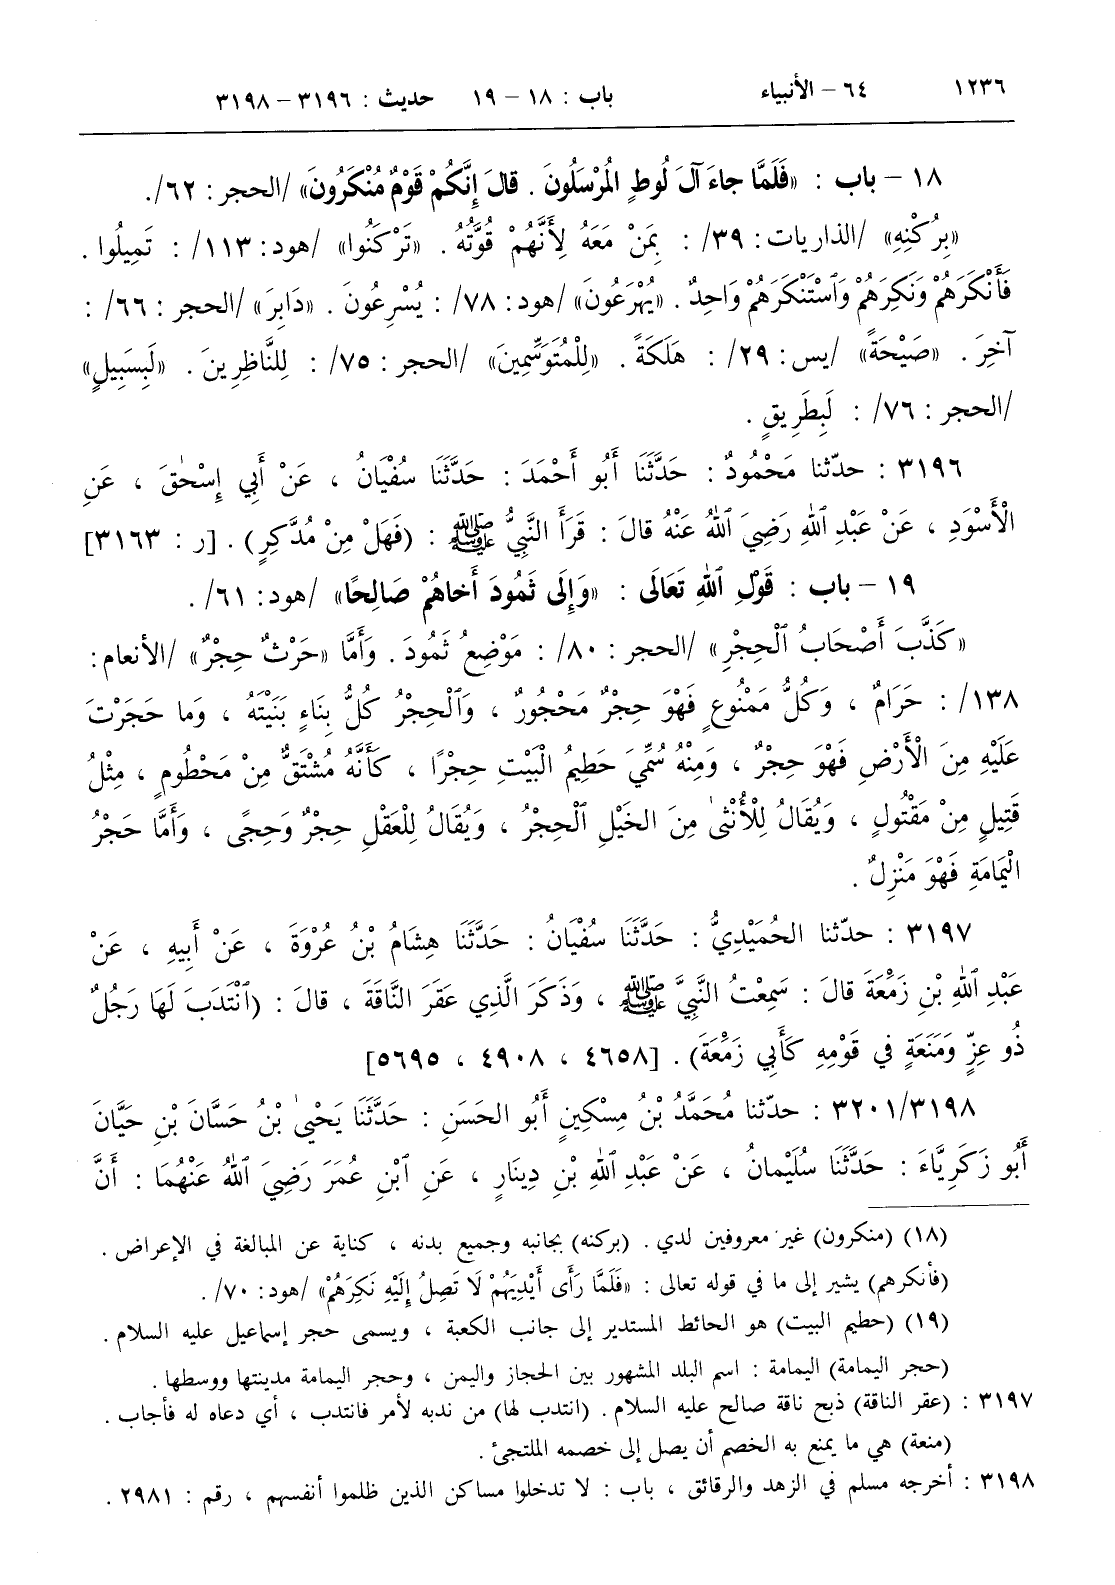 ١٢٣٦ ٦٤ – الأنبياء باب : ١٨ – ١٩ حديث : ٣١٩٦ – ٣١٩٨
١٨ – باب : «فَلَمَّا جاءَ آلَ لُوطٍ الْمُرْسَلُونَ . قالَ إِنَّكُمْ قَوْمٌ مُنْكَرُونَ» /الحجر : ٦٢/.
«بِرُكْنِهِ» /الذاريات : ٣٩/ : بِمَنْ مَعَهُ لِأَنَّهُمْ قُوَّتُهُ . «تَرْكَنُوا» /هود : ١١٣/ : تَمِيلُوا .
فَأَنْكَرَهُمْ وَنَكِرَهُمْ وَٱسْتَنْكَرَهُمْ وَاحِدٌ . «يُهْرَعُونَ» /هود : ٧٨/ : يُسْرِعُونَ . «دَابِرَ» /الحجر : ٦٦/ :
آخِرَ . «صَيْحَةً» /يس : ٢٩/ : هَلَكَةً . «لِلْمُتَوَسِّمِينَ» /الحجر : ٧٥/ : لِلنَّاظِرِينَ . «لَبِسَبِيلٍ»
/الحجر : ٧٦/ : لَبِطَرِيقٍ .
٣١٩٦ : حدّثنا مَحْمُودٌ : حَدَّثَنَا أَبُو أَحْمَدَ : حَدَّثَنَا سُفْيَانُ ، عَنْ أَبِي إِسْحٰقَ ، عَنِ
الْأَسْوَدِ ، عَنْ عَبْدِ ٱللهِ رَضِيَ ٱللهُ عَنْهُ قالَ : قَرَأَ النَّبِيُّ ﷺ : (فَهَلْ مِنْ مُدَّكِرٍ) . [ر : ٣١٦٣]
١٩ – باب : قَوْلِ ٱللهِ تَعَالَى : «وَإِلَى ثَمُودَ أَخاهُمْ صَالِحًا» /هود : ٦١/ .
«كَذَّبَ أَصْحَابُ ٱلْحِجْرِ» /الحجر : ٨٠/ : مَوْضِعُ ثَمُودَ . وَأَمَّا «حَرْثٌ حِجْرٌ» /الأنعام :
١٣٨/ : حَرَامٌ ، وَكُلُّ مَمْنُوعٍ فَهْوَ حِجْرٌ مَحْجُورٌ ، وَٱلْحِجْرُ كُلُّ بِنَاءٍ بَنَيْتَهُ ، وَما حَجَرْتَ
عَلَيْهِ مِنَ الْأَرْضِ فَهْوَ حِجْرٌ ، وَمِنْهُ سُمِّيَ حَطِيمُ الْبَيْتِ حِجْرًا ، كَأَنَّهُ مُشْتَقٌّ مِنْ مَحْطُومٍ ، مِثْلُ
قَتِيلٍ مِنْ مَقْتُولٍ ، وَيُقَالُ لِلْأُنْثىٰ مِنَ الخَيْلِ ٱلْحِجْرُ ، وَيُقَالُ لِلْعَقْلِ حِجْرٌ وَحِجًى ، وَأَمَّا حَجْرُ
الْيَمَامَةِ فَهْوَ مَنْزِلٌ .
٣١٩٧ : حدّثنا الحُمَيْدِيُّ : حَدَّثَنَا سُفْيَانُ : حَدَّثَنَا هِشَامُ بْنُ عُرْوَةَ ، عَنْ أَبِيهِ ، عَنْ
عَبْدِ ٱللهِ بْنِ زَمْعَةَ قالَ : سَمِعْتُ النَّبِيَّ ﷺ ، وَذَكَرَ الَّذِي عَقَرَ النَّاقَةَ ، قالَ : (ٱنْتَدَبَ لَهَا رَجُلٌ
ذُو عِزٍّ وَمَنَعَةٍ في قَوْمِهِ كَأَبِي زَمْعَةَ) . [٤٦٥٨ ، ٤٩٠٨ ، ٥٦٩٥]
٣٢٠١/٣١٩٨ : حدّثنا مُحَمَّدُ بْنُ مِسْكِينٍ أَبُو الحَسَنِ : حَدَّثَنَا يَحْيىٰ بْنُ حَسَّانَ بْنِ حَيَّانَ
أَبُو زَكَرِيَّاءَ : حَدَّثَنَا سُلَيْمانُ ، عَنْ عَبْدِ ٱللهِ بْنِ دِينَارٍ ، عَنِ ٱبْنِ عُمَرَ رَضِيَ ٱللهُ عَنْهُمَا : أَنَّ
(١٨) (منكرون) غير معروفين لدي . (بركنه) بجانبه وجميع بدنه ، كناية عن المبالغة في الإعراض .
(فأنكرهم) يشير إلى ما في قوله تعالى : «فَلَمَّا رَأَى أَيْدِيَهُمْ لَا تَصِلُ إِلَيْهِ نَكِرَهُمْ» /هود : ٧٠/ .
(١٩) (حطيم البيت) هو الحائط المستدير إلى جانب الكعبة ، ويسمى حجر إسماعيل عليه السلام .
(حجر اليمامة) اليمامة : اسم البلد المشهور بين الحجاز واليمن ، وحجر اليمامة مدينتها ووسطها .
٣١٩٧ : (عقر الناقة) ذبح ناقة صالح عليه السلام . (انتدب لها) من ندبه لأمر فانتدب ، أي دعاه له فأجاب .
(منعة) هي ما يمنع به الخصم أن يصل إلى خصمه الملتجئ .
٣١٩٨ : أخرجه مسلم في الزهد والرقائق ، باب : لا تدخلوا مساكن الذين ظلموا أنفسهم ، رقم : ٢٩٨١ .